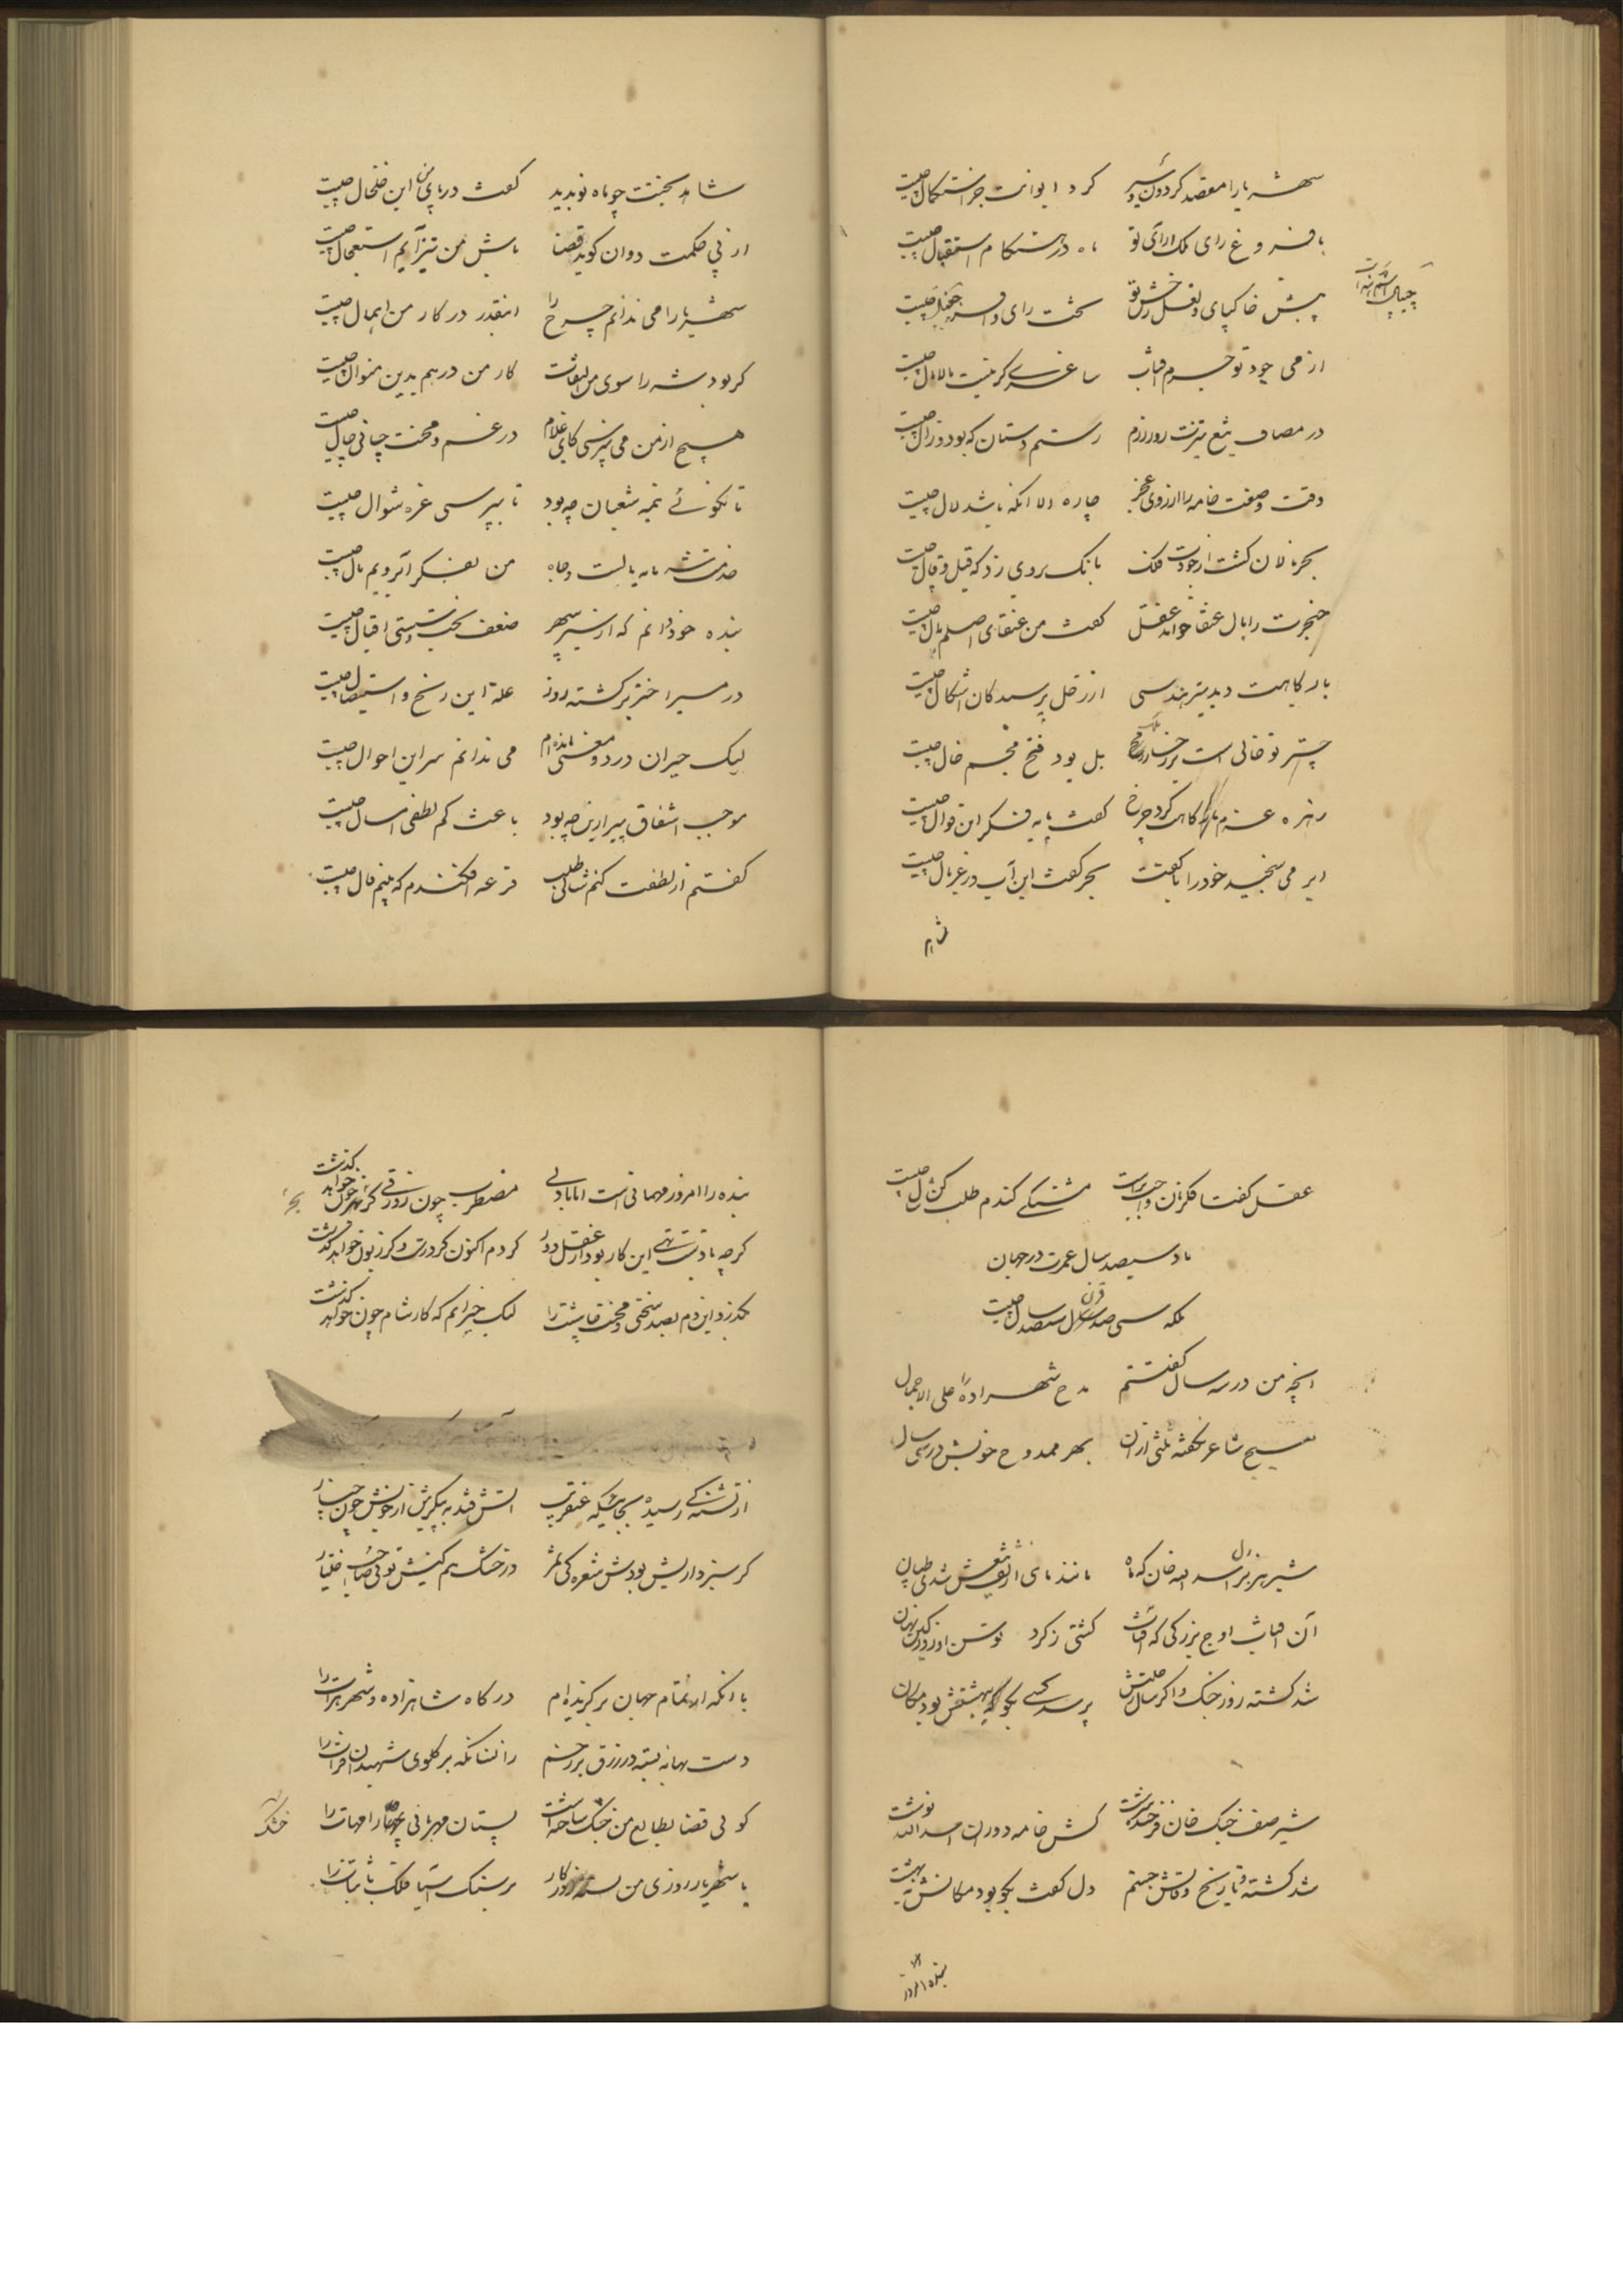 شهریارا مقصد گردون سیر کرد ایوانت جز استکمال چیست
با فروغ رای ملک آرای تو ماه در هنگام استقبال چیست
پیش خاکپای و لعل رخش تو تخت رای و افسر چیپال چیست
از می جود تو جرم آفتاب ساغری گر نیست مالامال چیست
در مصاف تیغ تیزت روز رزم رستم دستان که بود و زال چیست
وقت وصفت خامه را از روی عجز چاره الا آنکه باشد لال چیست
بحر نالان گشت از جودت فلک بانگ بر وی زد که قیل و قال چیست
خنجرت را بال عنقا خواند عقل گفت من عنقای اصلم بال چیست
بارگاهت دید پیر هندسی از زحل پرسید کان اشکال چیست
چتر تو خالی است بر رخسار بل بود فتح مجسم خال چیست
زهره عزم بارگاهت کرد چرخ گفت با یه فکر این قوال چیست
ابر می سنجید خود را با کفت بحر گفت این آب در غربال چیست
شاهد
شاهد بختت چو ماه نو بدید گفت در پای من این خلخال چیست
از پی حکمت دوان گوید قضا باش من نیز آیم استعجال چیست
شهریارا می ندانم چرخ را اینقدر در کار من اهمال چیست
گر بود شه را سوی من التفات کار من درهم بدین منوال چیست
هیچ از من می نپرسی کای غلام در غم و محنت چانی حال چیست
تا نگوئی نیمه شعبان چه بود تا نپرسی غره شوال چیست
خدمت شه مایه بالست و جاه من بفکر آبرویم مال چیست
بنده خود دانم که از سیر سپهر ضعف بخت و سستی اقبال چیست
در مسیر اختر برگشته روز علت این رنج و استیصال چیست
لیک حیران در دو معنی مانده ام می ندانم سر این احوال چیست
موجب اشفاق پیرارین چه بود باعث کم لطفی امسال چیست
گفتم از لطفت کنم شالی طلب قرعه افکندم که بینم فال چیست
عقل گفتا فکر نان واجب تر است مشتکی گندم طلب کن شال چیست
باد سیصد سال عمرت در جهان
بلکه سی صد قرن سیصد سال چیست
آنچه من در سه سال گفتستم مدح شهزاده را علی الاجمال
هیچ شاعر نگفته ثلثی از آن بهر ممدوح خویش در سی سال
شیر هژبر اسد الله خان که ماه مانند نای از شعش شدی طپان
آن آفتاب اوج بزرگی که آفتاب کشتی ز گرد توسن او زود در نهان
شد کشته روز جنگ و اگر سال رحلتش پرسد کسی بگو که بهشتش بود مکان
شیر صف جنگ خان فرخنده سرشت کش خامه دوران اسد الله نوشت
شد کشته و تاریخ وفاتش جستم دل گفت بگو بود مکانش بهشت
بنده امروز
بنده را امروز مهمانی است اما بادلی مضطرب چون زورقی کز بحر خون خواهد گذشت
گرچه با دست تهی این کار بود از عقل دور کردم اکنون گر درست و گر زبون خواهد گذشت
بگذرد این دم بصد سختی و محنت چاشت را لیک حیرانم که کار شام چون خواهد گذشت
از تشنگی رسیده بجائیکه عنقریب آتش فتد به پیکرش از خویش چون چنار
گر سبز داریش بودش ثمره گی ثمر در خشک هم کنیش توئی صاحب اختیار
با آنکه از تمام جهان برگزیده ام درگاه شاهزاده و شهر هرات را
دست بهانه بسته در رزق بر رخم زانسانکه بر گلوی شهیدان فرات را
گوئی قضا بطالع من خشک ساخته است پستان مهربانی چهار امهات را
یا شهریار روزی من روزگار بر سنگ آسیا فلک بی ثبات را
خشک